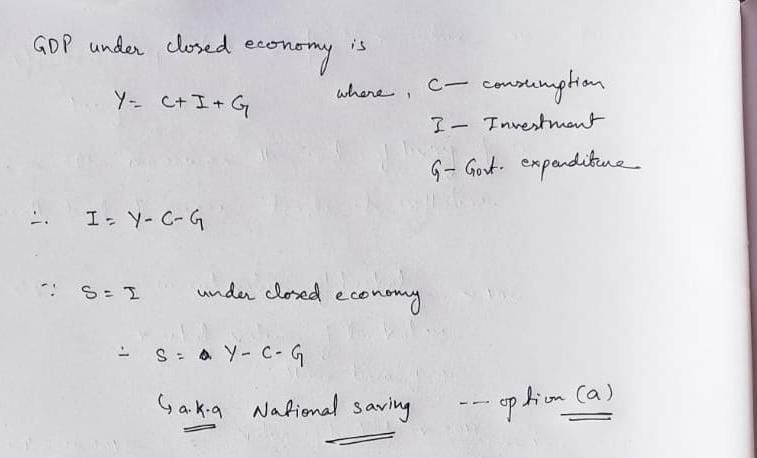 GDP under closed economy is
Y= C+I+G where, C— consumption
I— Investment
G— Govt. expenditure
∴ I= Y-C-G
∵ S=I under closed economy
∴ S= Y-C-G
↳ a.k.a National saving --- option (a)